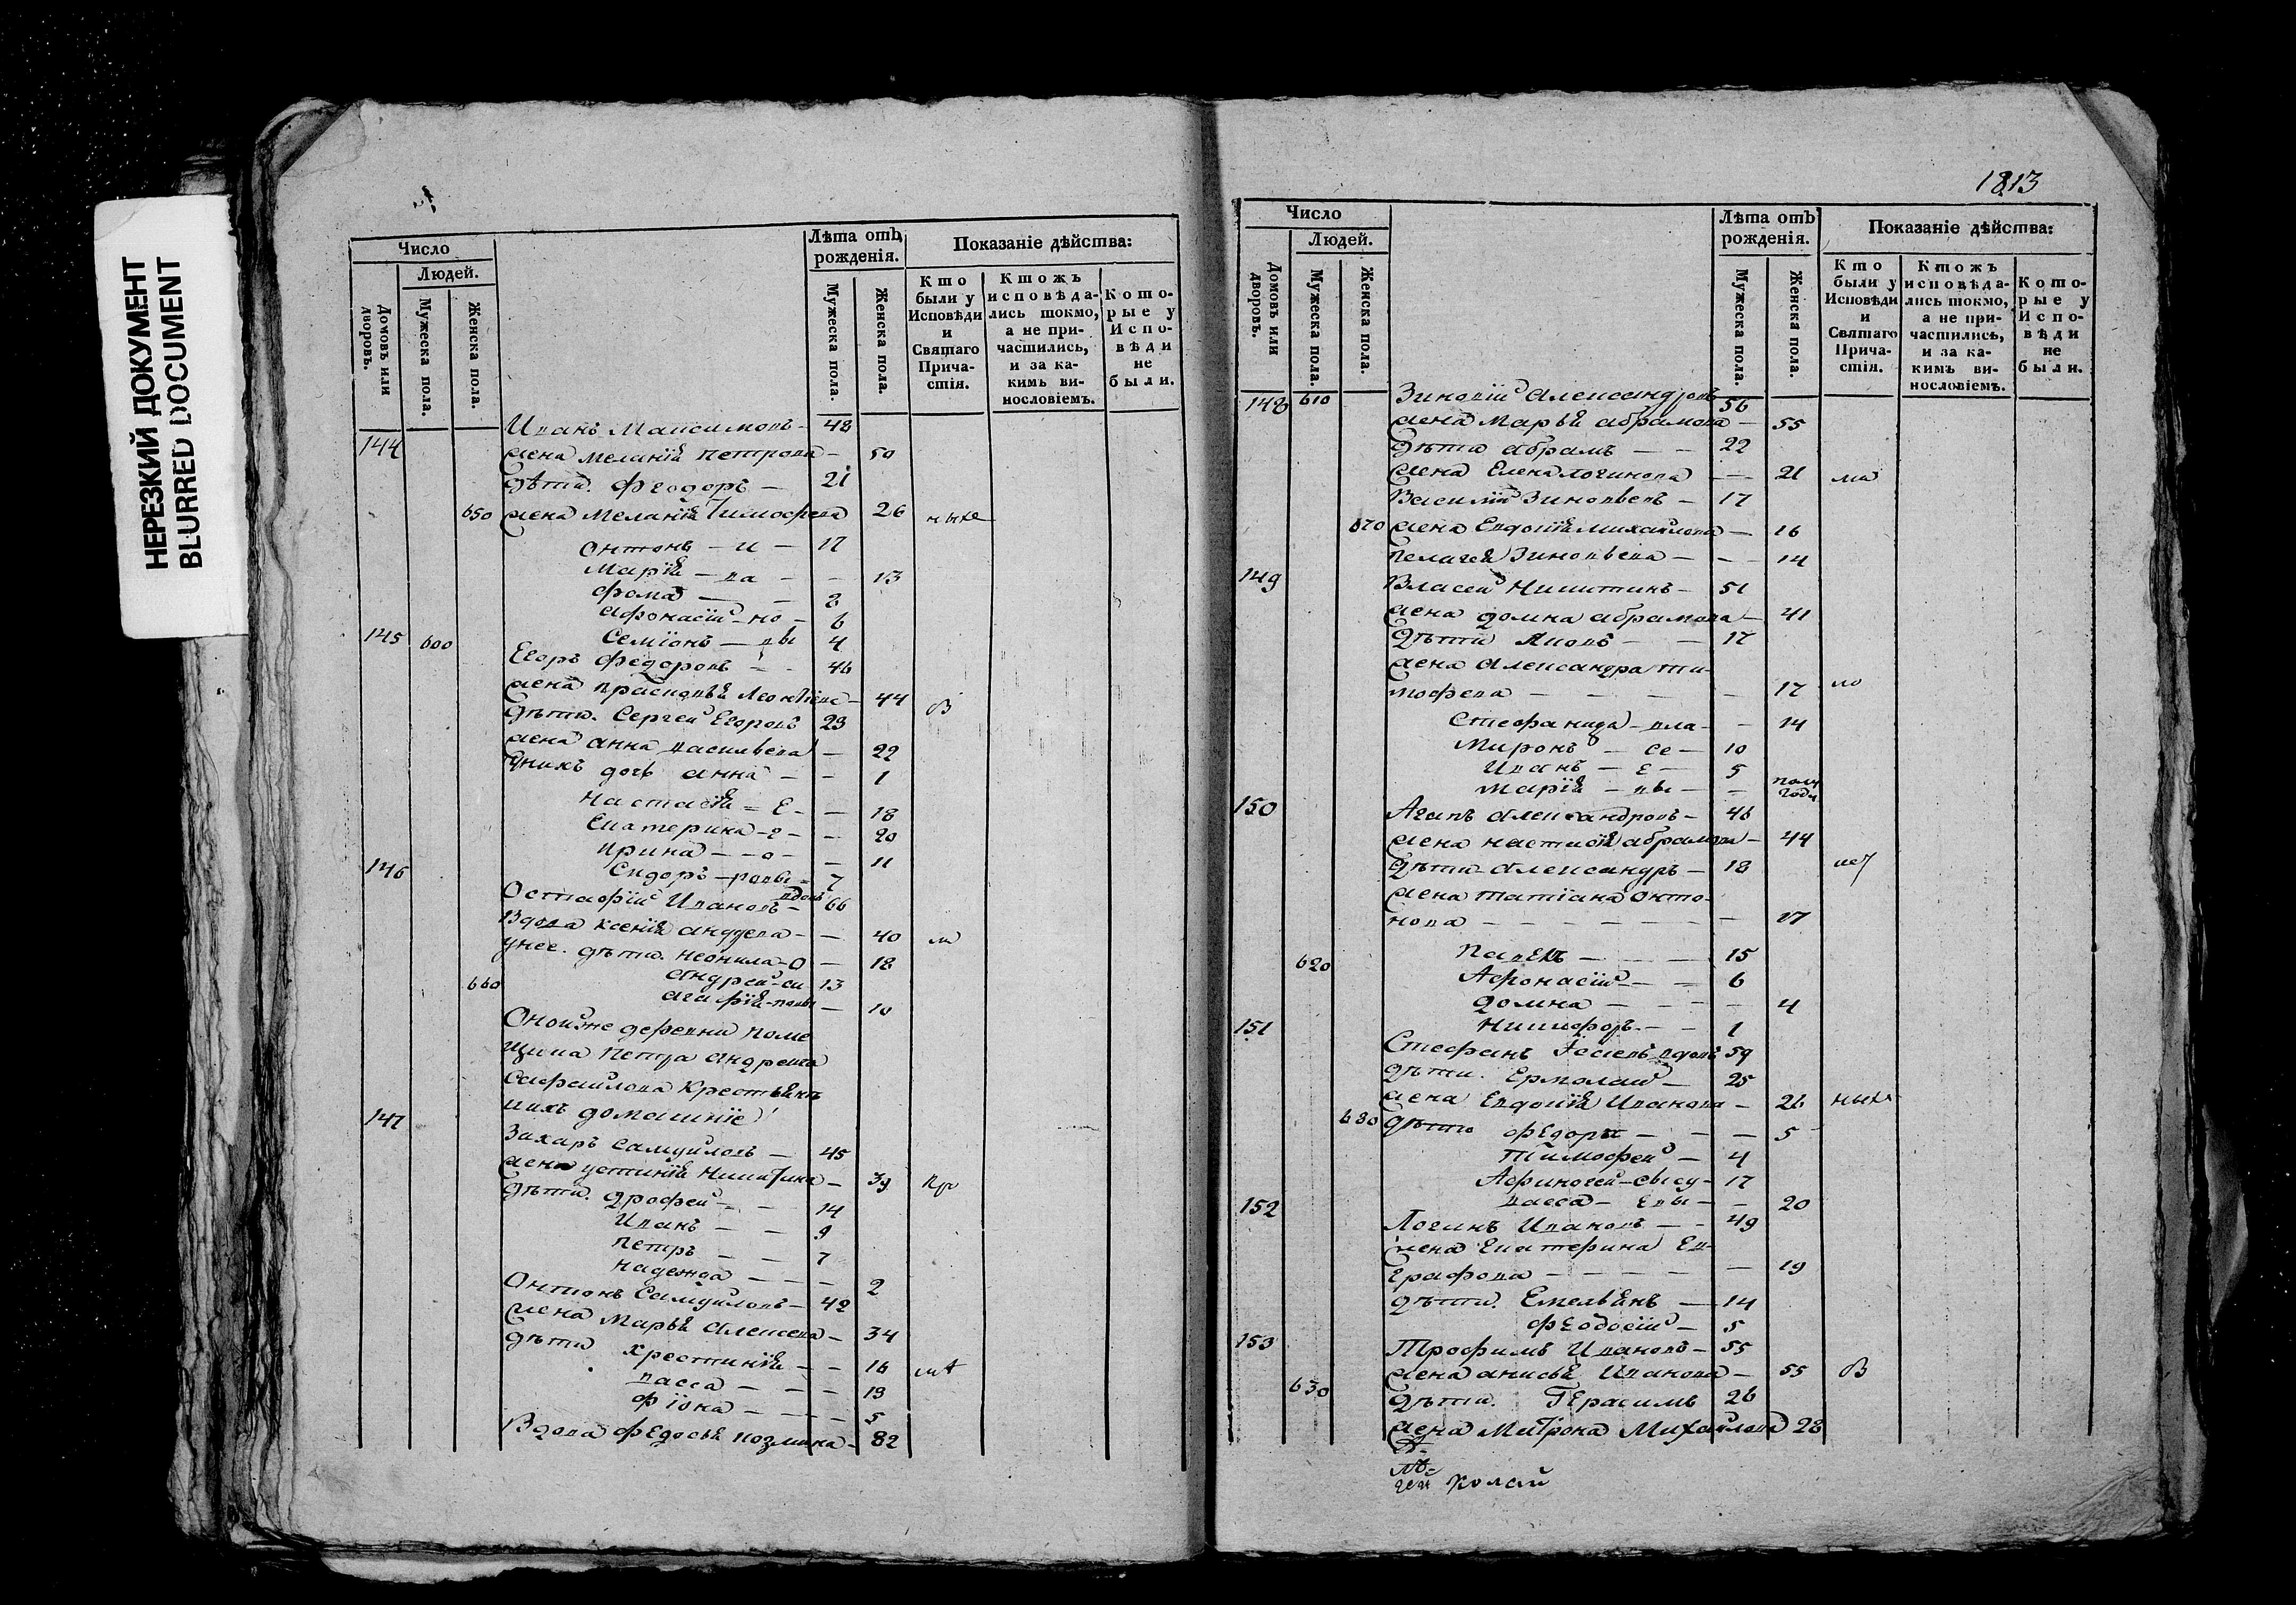 НЕРЕЗКИЙ ДОКУМЕНТ
BLURRED DOCUMENT
Число
Людей.
Домовъ или дворовъ.
Мужеска пола.
Женска пола.
Лѣта отъ рожденія.
Мужеска пола.
Женска пола.
Показаніе дѣйства:
Кто были у Исповѣди и Святаго Причастія.
Ктожъ исповѣдались токмо, а не причастились, и за какимъ винословіемъ.
Которые у Исповѣди не были.
144 Иванъ Максимовъ - 48
жена Меланія Петрова - 50
дѣти. Феодоръ - 21
650 жена Меланія Тимофеева 26 ныхе
Онтонъ - и - 17
Марія - ва - - 13
Фома - - 8
Афонасій - но - 6
Семіонъ - вы 4
145 600 Егоръ Федоровъ - - 46
жена Прасковья Леонтіева - 44 в
дѣти. Сергей Егоровъ 23
жена Анна Васильева - 22
у нихъ дочь Анна - - 1
Настасія - Е - - 18
Екатерина - г - - 20
Ирина - - о - - 11
Сидоръ - ровы - 7
146 Остафій Ивановъ вдовъ - 66
Вдова Ксенія Авдеева - - 40 ли
у нее. дѣти. Неонила - О - 18
Андрей - си 13
660 Агафія - повы - 10
Оной же деревни поме
щика Петра Андреева
Сафайлова Крестьяне
и ихъ домашніе
147 Захаръ Самуйловъ - 45
жена Устинія Никитина - 39 пр
дѣти. Дрофей - - 14
Иванъ - - 9
Петръ - - 7
Надежда - - - 2
Онтонъ Самуйловъ - 42
жена Марья Алексеева - 34
дѣти Хрестинія - - 16
васса - - - 13
Фіона - - - 5
Вдова Федосья Козмина - 82
1813
Число
Людей.
Домовъ или дворовъ.
Мужеска пола.
Женска пола.
Лѣта отъ рожденія.
Мужеска пола.
Женска пола.
Показаніе дѣйства:
Кто были у Исповѣди и Святаго Причастія.
Ктожъ исповѣдались токмо, а не причастились, и за какимъ винословіемъ.
Которые у Исповѣди не были.
148 610 Зиновій Александровъ 56
жена Марья Абрамова - 55
Дѣти Абрамъ - - 22
жена Елена Логинова - - 21
Василій Зиновьевъ - 17
670 жена Евдокія Михайлова - 16
Пелагея Зиновьева - - - 14
149 Власей Никитинъ - 51
жена Домна Абрамова - 41
Дѣти Яковъ - - 17
жена Александра Ти-
мофеева - - - - - 17 ло
Стефанида - вла - - 14
Миронъ - се - 10
Иванъ - е - 5
Марія - вы - - полу года
150 Агапъ Александровъ - 46
жена Настасія Абрамова - 44
Дѣти Александръ - 18
жена Татіана Онто-
нова - - - - - - 17
Павелъ - - - 15
620 Афонасій - - 6
Домна - - - - 4
Никифоръ - - 1
151 Стефанъ вдовъ 59
дѣти. Ермолай - 25
жена Евдокія Иванова - 26 ныхъ
680 дѣти Федора - - - 5
Тимофей - 4
Афиногей - - 17
васса - - - 20
152 Логинъ Ивановъ - - 49
жена Екатерина Ев-
графова - - - - - 19
дѣти. Емельянъ - 14
Феодосій - 5
153 Трофимъ Ивановъ - 55
жена Анисья Иванова - 55 в
630 дѣти. Герасимъ 26
жена Матрона Михайлова 28